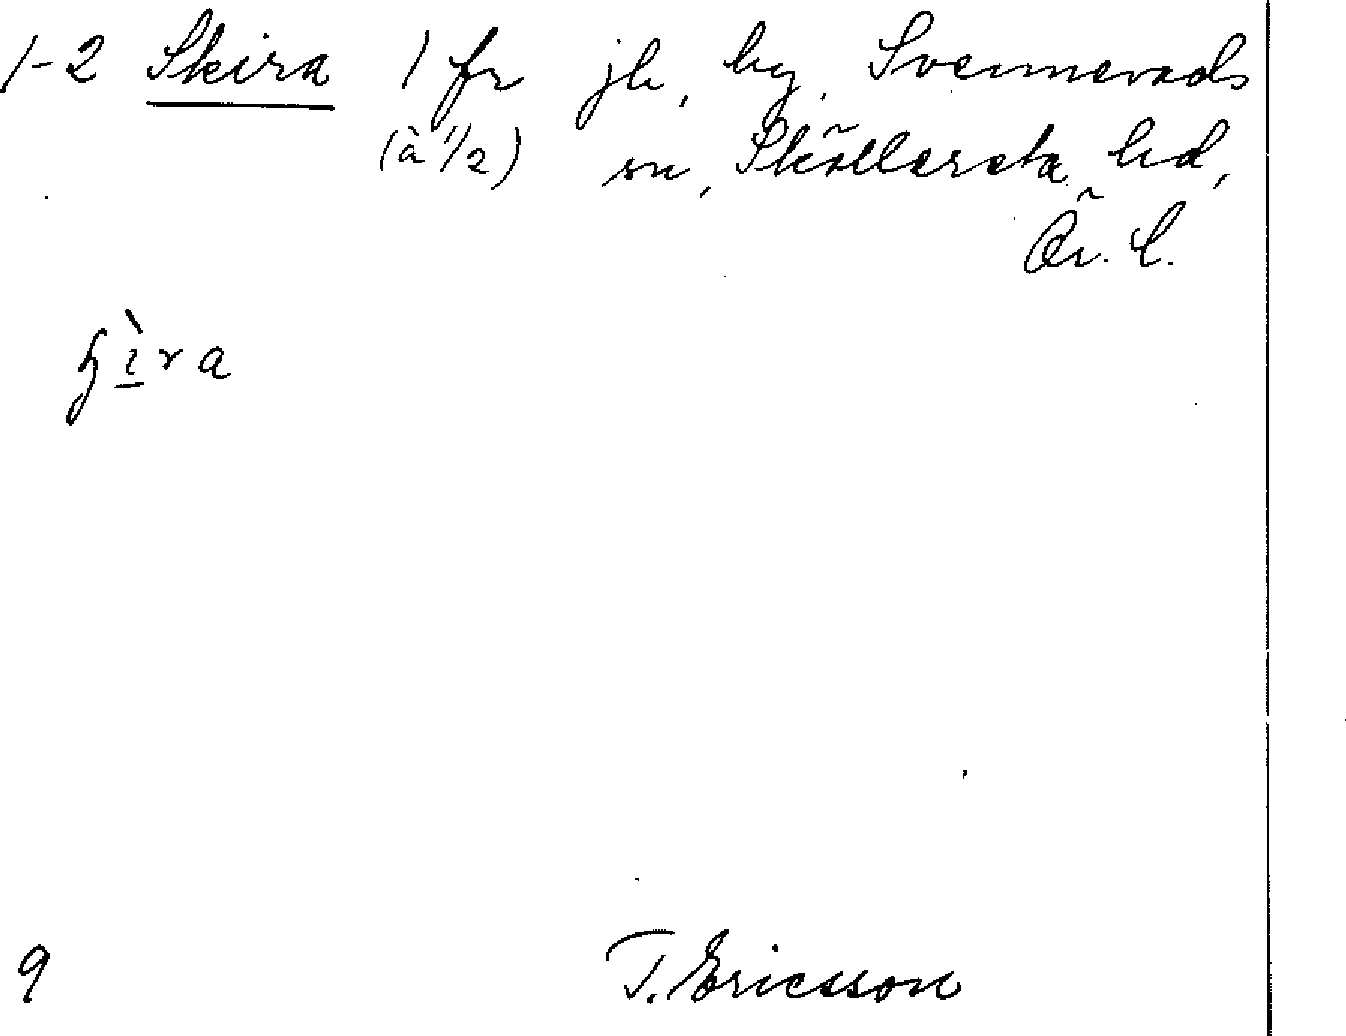 1-2 Skira 1 fr jb, by, Svennevads
(à 1/2) sn, Sköllersta hd,
Ör. l.
ɧìra
9 T. Ericsson